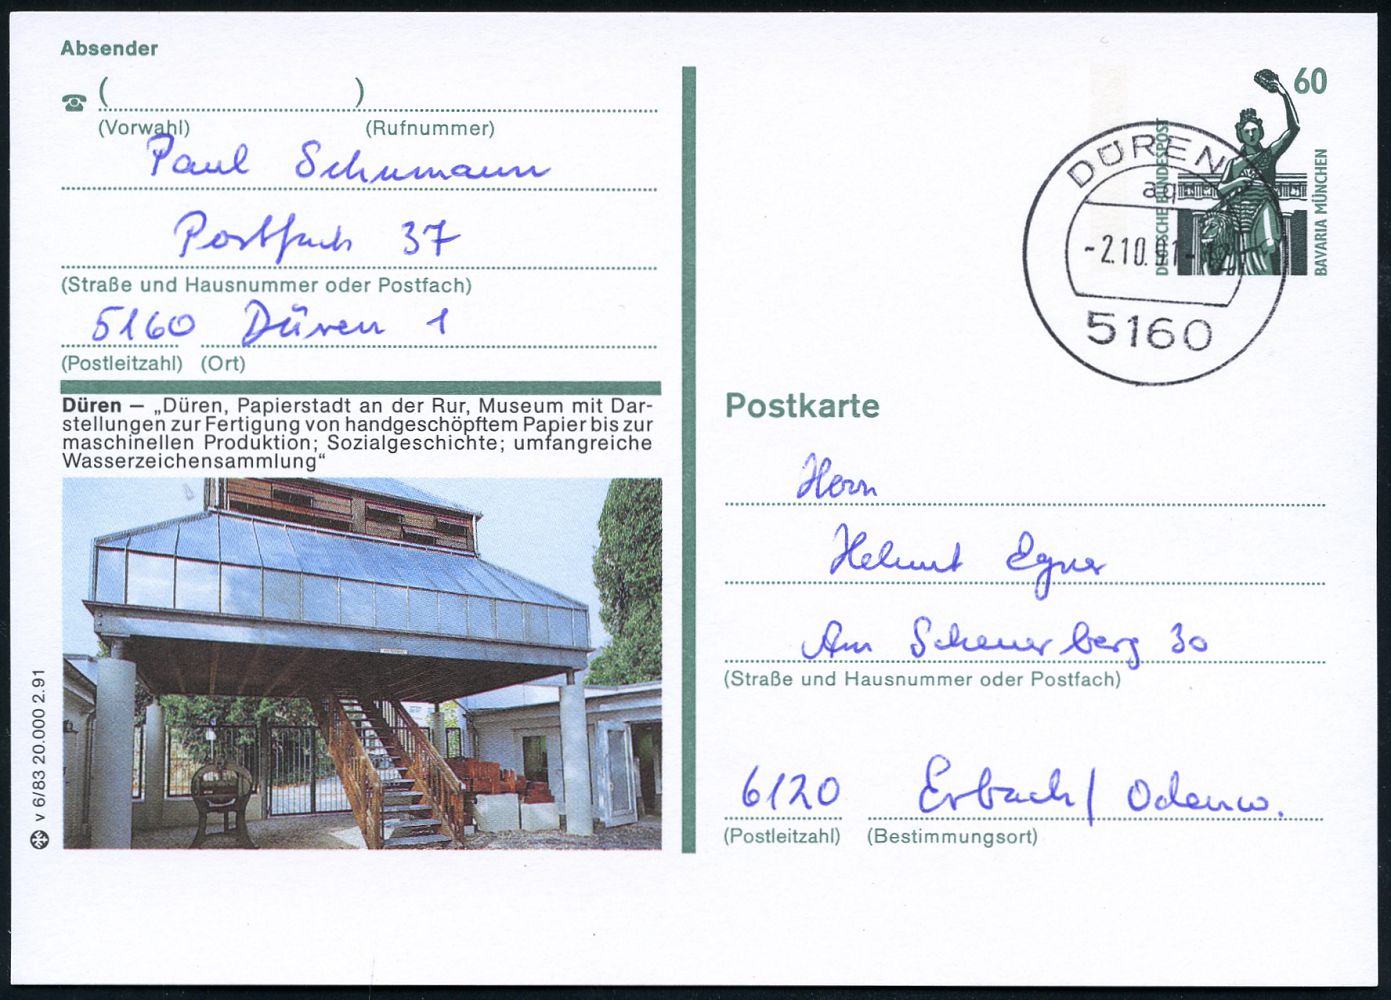 Absender
( )
(Vorwahl) (Rufnummer)
Paul Schumann
Postfach 37
(Straße und Hausnummer oder Postfach)
5160 Düren 1
(Postleitzahl) (Ort)
Düren – „Düren, Papierstadt an der Rur, Museum mit Dar-
stellungen zur Fertigung von handgeschöpftem Papier bis zur
maschinellen Produktion; Sozialgeschichte; umfangreiche
Wasserzeichensammlung“
v 6/83 20.000 2.91
60
DEUTSCHE BUNDESPOST
BAVARIA MÜNCHEN
DÜREN
aq
-2.10.91-12
5160
Postkarte
Herrn
Helmut Egner
Am Scheuerberg 30
(Straße und Hausnummer oder Postfach)
6120 Erbach/Odenw.
(Postleitzahl) (Bestimmungsort)